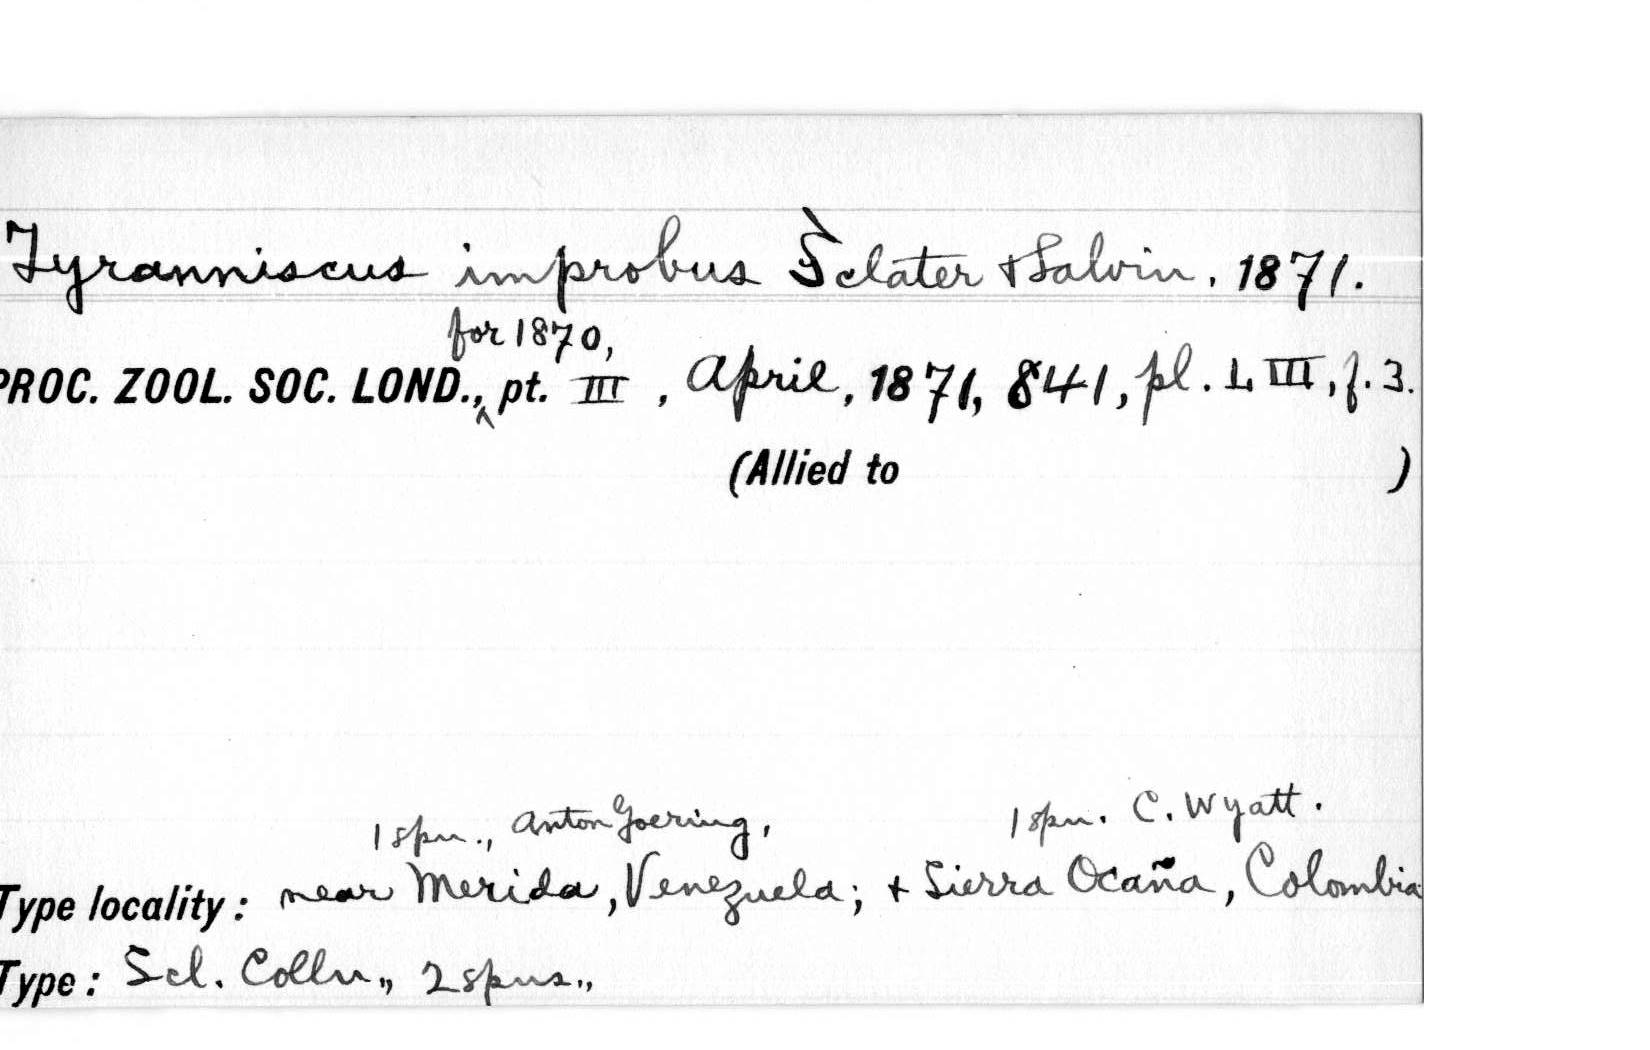 Tyranniscus improbus Sclater & Salvin, 1871.
for 1870,
PROC. ZOOL. SOC. LOND., ^ pt. III, April, 1871, 841, pl. LIII, f. 3.
(Allied to )
1 spn., Anton Goering, 1 spn. C. Wyatt.
Type locality: near Merida, Venezuela; & Sierra Ocaña, Colombia
Type: Scl. Colln., 2 spns.,